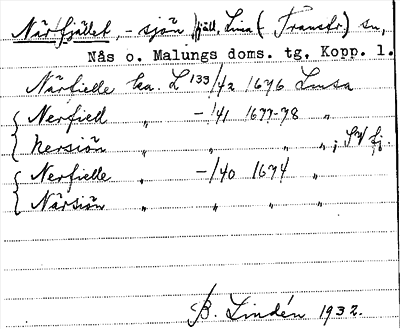 Närfjället, -sjön fjäll, Lima (Transtr) sn,
Nås o. Malungs doms. tg, Kopp. l.
Närfielle ka. L 133/42 1696 Limsa
Nerfield " -/41 1677-78 "
Nersiön " " " " ; Sv/fj.
Nerfielle " -/40 1674 "
Närsiön " " " "
B. Lindén 1932.